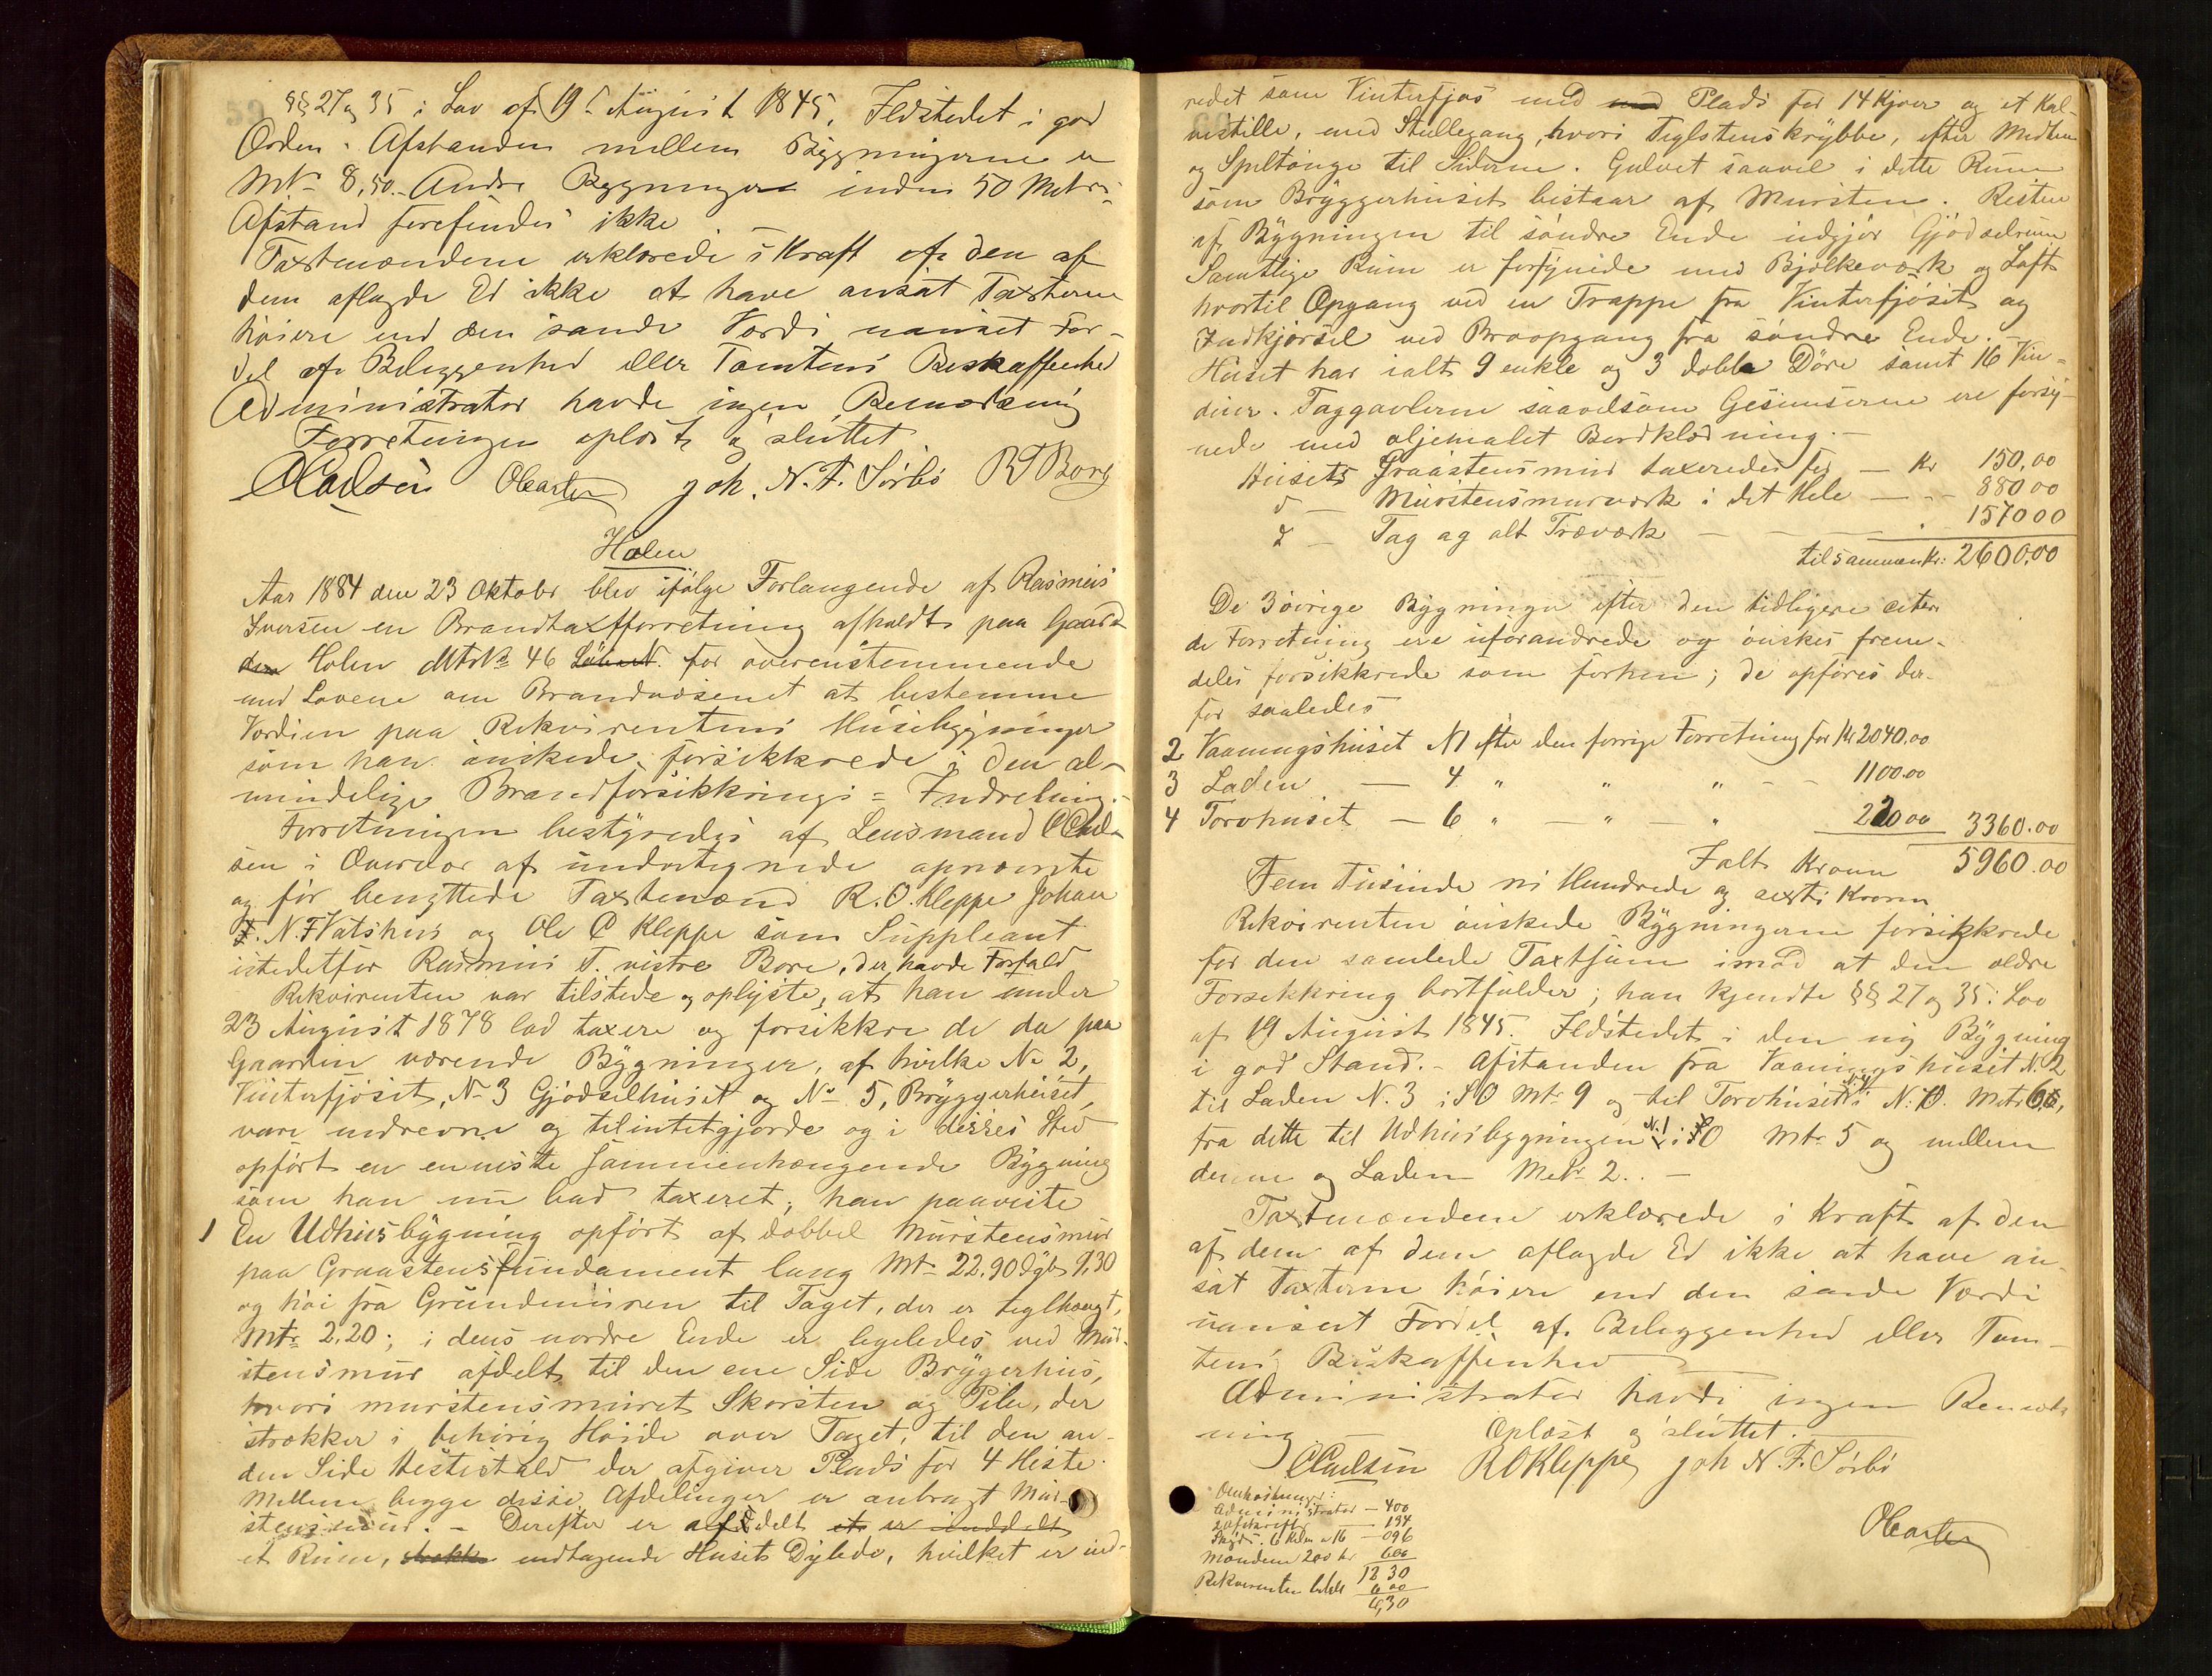 §§ 27 og 35 i Lov af 19 August 1845. Ildstedet i god
Orden. Afstanden mellem Bygningerne er
Mtr 8,50. Andre Bygninger inden 50 Metrs
Afstand forefindes ikke
Taxtmændene erklærede i Kraft af den af
dem aflagde Ed ikke at have ansat Taxterne
høiere end den sande Værdi uanset For-
del af Beleggenhed eller Tomtens Beskaffenhed
Administrator havde ingen Bemærkning
Forretningen oplæst og sluttet
Joh. N. F. Sørbö
Holen
Aar 1884 den 23 Oktober blev ifölge Forlangende af Rasmus
Iversen en Brandtaxtforretning afholdt paa Gaard
den Holen MtrNo 46 for overenstemmende
med Lovene om Brandvæsenet at bestemme
Værdien paa Rekvirentens Husebygninger
som han önskede forsikkrede i den al-
mindelige Brandforsikkrings = Indretning.
Forretningen bestyredes af Lensmand C Carl-
sen i Overvær af undertegnede opnævnte
og før benyttede Taxtmænd R. O. Kleppe Johan
N. F Vatshus og Ole C Kleppe som Suppleant
istedetfor Rasmus T. vestre Bore, der havde Forfald
Rekvirenten var tilstede og oplyste, at han under
23 August 1878 lod taxere og forsikkre de da paa
Gaarden værende Bygninger, af hvilke No 2,
Vinterfjöset, No 3 Gjödselhuset og No 5, Bryggerhuset,
vare nedrevne og tilintetgjorde og i disses Sted
opfört en eneste sammenhængende Bygning
som han nu bad taxeret; han paaviste
1 En Udhusbygning opfört af dobbel Murstensmur
paa Graastensfundament lang Mtr 22,90 dyb 9,30
og höi fra Grundmuren til Taget, der er teglhængt,
Mtr 2,20; i dens nordre Ende er ligeledes ved Mur-
stensmur afdelt til den ene Side Bryggerhus,
hvori murstensmuret Skorsten og Pibe, der
strækker i behörig Höide over Taget, til den an-
den Side Hestestald der afgiver Plads for 4 Heste.
Mellem begge disse Afdelinger er anbragt Mur-
stensmur. - Derefter er afdelt et er inddelt
et Rum, indtagende Husets Dybde, hvilket er ind-
redet som Vinterfjös med med Plads for 14 Kjöer og et Kal-
vestille, med Stellegang, hvori Teglstenskrybbe, efter Midten
og Spiltönge til Siderne. Gulvet saavel i dette Rum
som Bryggerhuset bestaar af Mursten. Resten
af Bygningen til söndre Ende udgjör Gjödselrum
Samtlige Rum er forsynede med Bjelkeværk og Loft
hvortil Opgang ved en Trappe fra Vinterfjöset og
Indkjörsel ved Broopgang fra söndre Ende. -
Huset har ialt 9 enkle og 3 doble Döre samt 16 Vin-
duer. Taggavlerne saavelsom Gesimserne ere forsy-
nede med oljemalet Bordklædning. -
Husets Graastensmur taxeredes for - Kr 150,00
d - Murstensmurværk i det Hele - - - 880 00
d - Tag og alt Træværk - - - 1570 00
tilsammen Kr: 2600,00
De 3 övrige Bygninger efter den tidligere citere-
de Forretning ere uforandrede og önskes frem-
deles forsikkrede som forhen; de opföres der-
for saaledes
2 Vaaningshuset N 1 efter den forrige Forretning for Kr 2040.00
3 Laden - 4 " " " - - 1100.00
4 Torvhuset - 6 " - " - " 220 00 3360.00
Ialt Kroner 5960.00
Fem Tusinde ni Hundrede og sexti Kroner
Rekvirenten önskede Bygningerne forsikkrede
for den samlede Taxtsum imod at den ældre
Forsikkring bortfalder; han kjendte §§ 27 og 35 i Lov
af 19 August 1845. Ildstedet i den ny Bygning
i god Stand. - Afstanden fra Vaaningshuset N. 2
til Laden N. 3 i SO Mtr 9 og til Torvhuset i N.O. Metr
fra dette til Udhusbygningen N. 1 i SO Mtr 5 og mellem
denne og Laden Metr 2. . -
Taxtmændene erklærede i Kraft af den
af dem af dem aflagde Ed ikke at have an-
sat Taxterne höiere end den sande Værdi
uanseet Fordel af Beleggenhed eller Tom-
tens Beskaffenhed
Administrator havde ingen Bemærk
ning Oplæst og sluttet. -
CCarlsen R O Kleppe Joh N. F. Sörbö
Omkostninger:
Administrator - 400
2 Afskrifter - 134
Skyds. 6 Kilm a 16 - 096
Mændene 200 kr 600
12 30
Rekvirenten